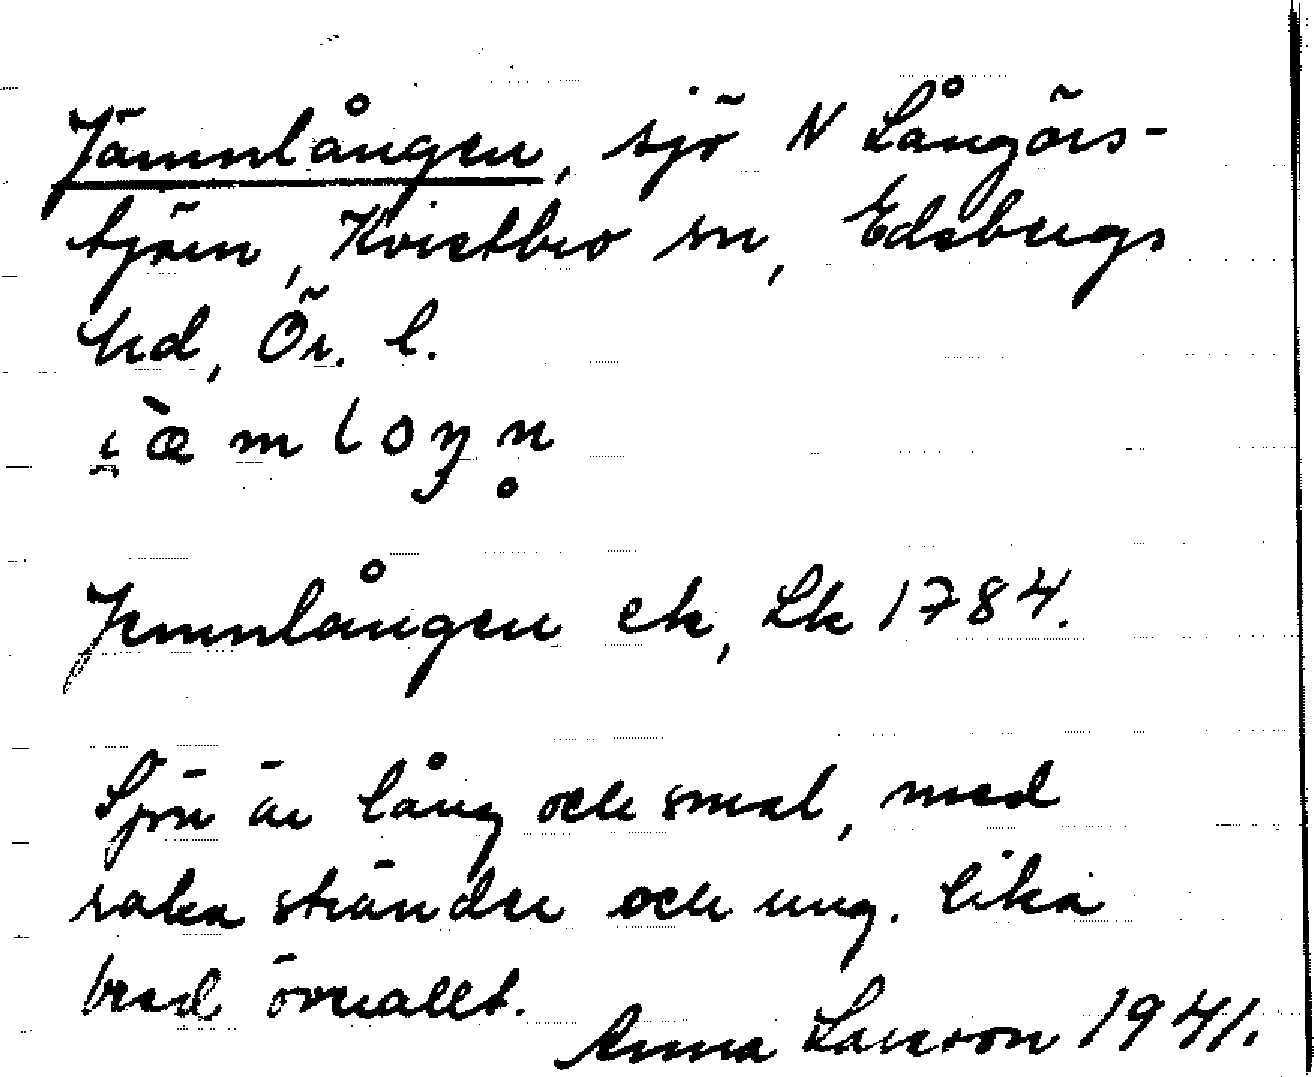 Jämnlången, sjö N Långörs-
tjärn, Kvistbro sn, Edsbergs
hd, Ör. l.
i̯æ̀mloŋn̥
Jemnlången ek, Lk 1784.
Sjön är lång och smal, med
raka stränder och ung. lika
bred överallt.
Anna Larsson 1941.